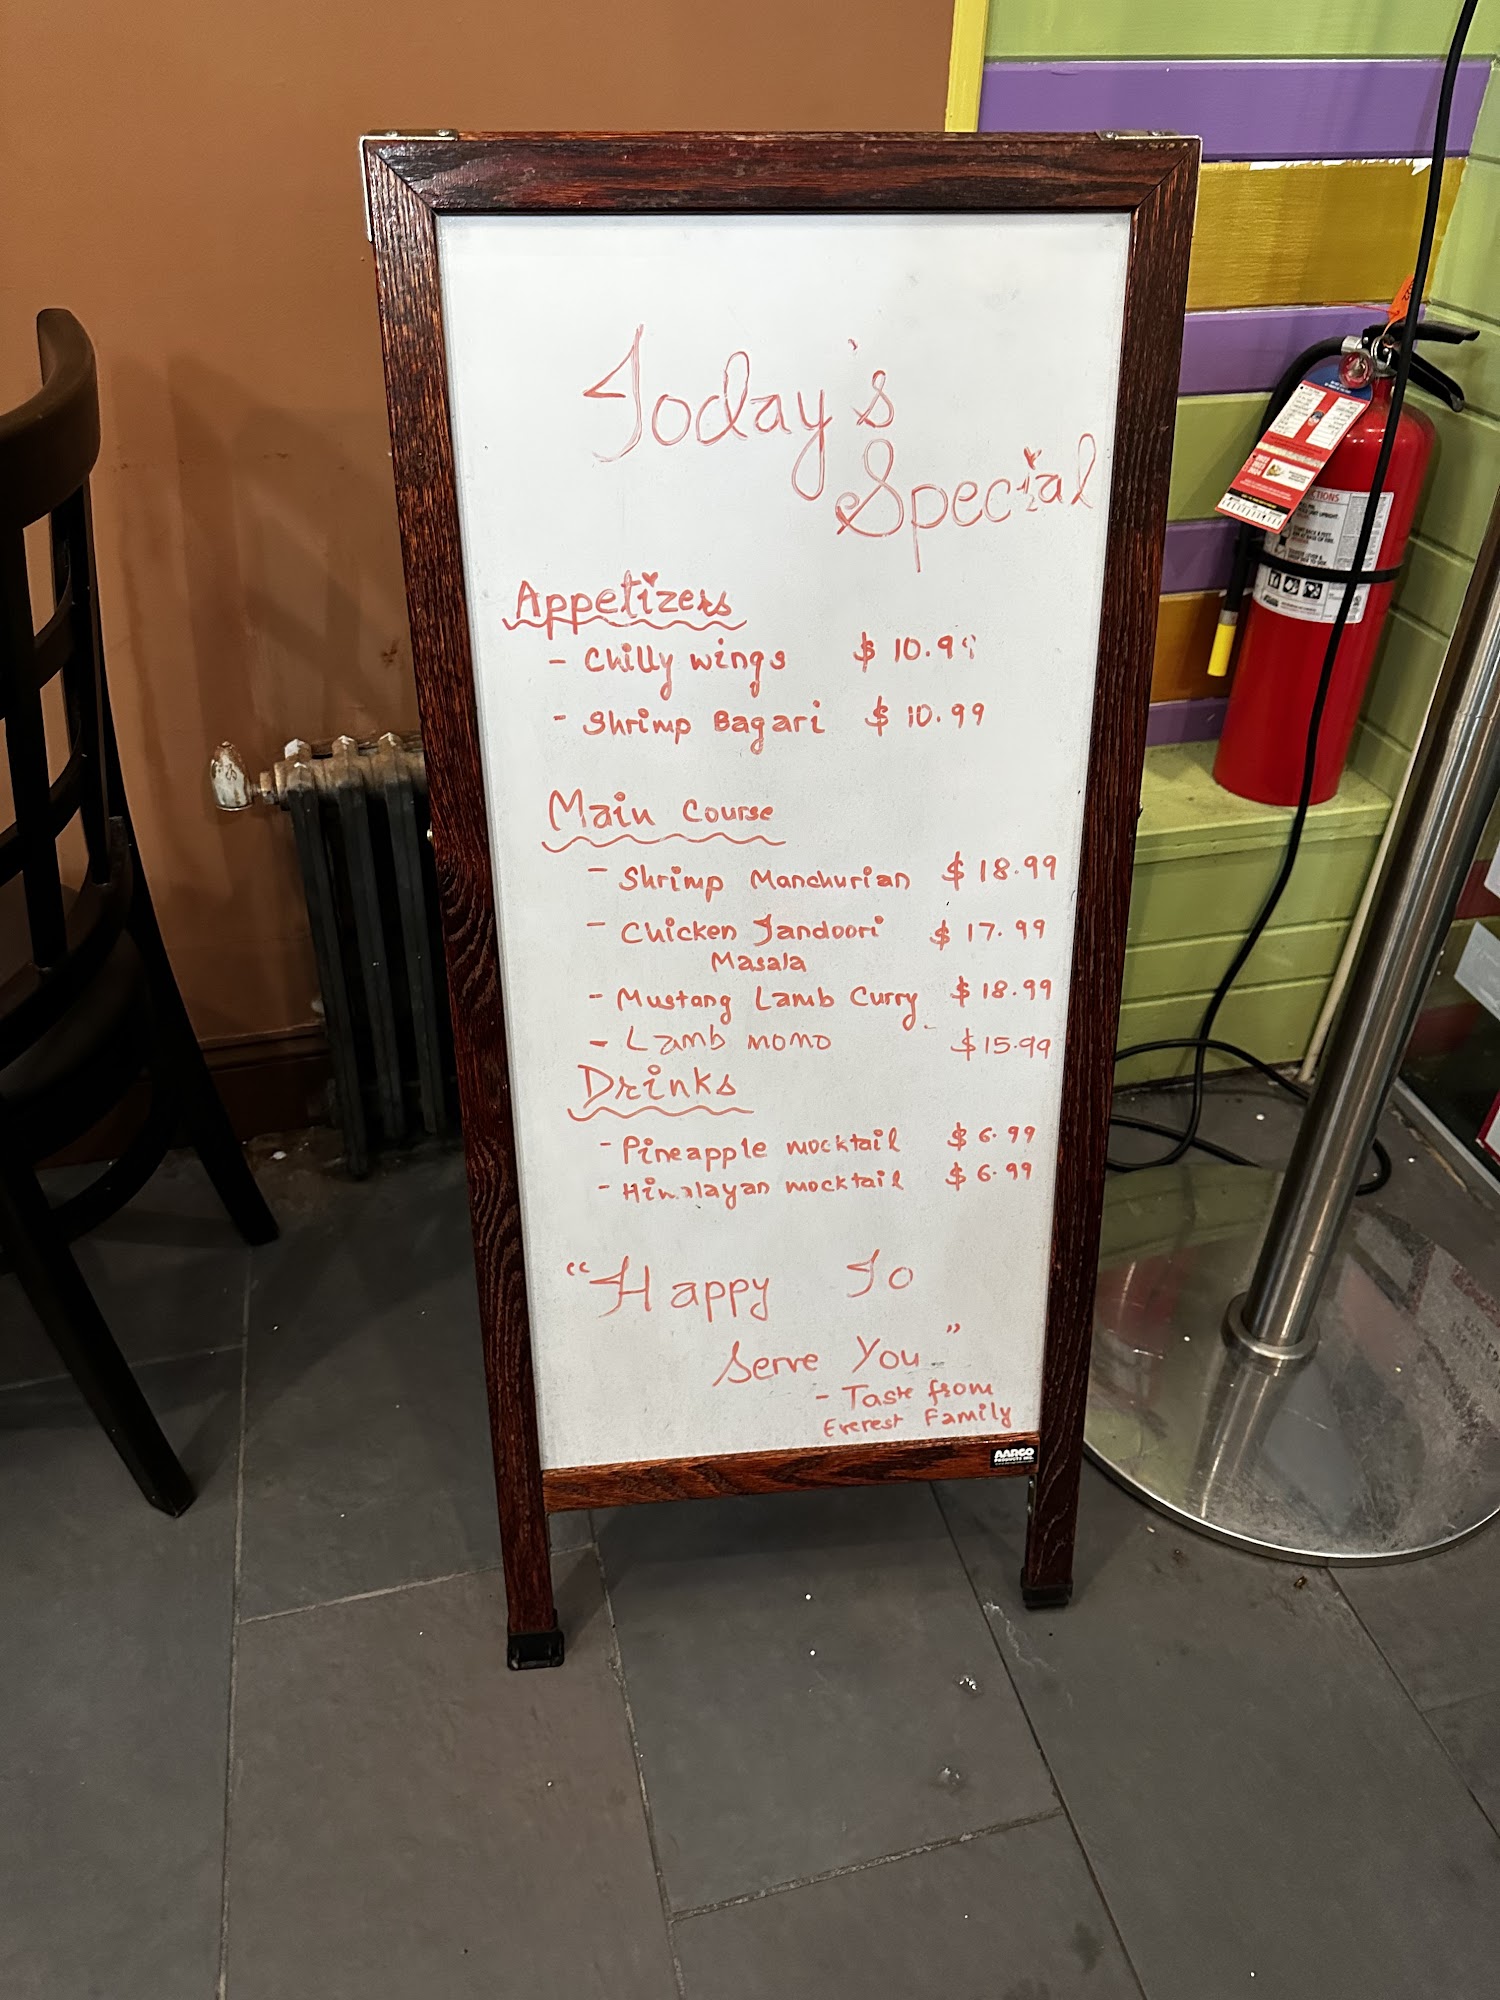 Today's
Special
Appetizers
- Chilly wings $ 10.99
- Shrimp Bagari $ 10.99
Main Course
- Shrimp Manchurian $ 18.99
- Chicken Tandoori $ 17.99
Masala
- Mustang Lamb Curry $ 18.99
- Lamb momo $15.99
Drinks
- Pineapple mocktail $ 6.99
- Himalayan mocktail $ 6.99
"Happy To
Serve You"
- Taste from
Everest Family
AARCO
PRODUCTS INC.